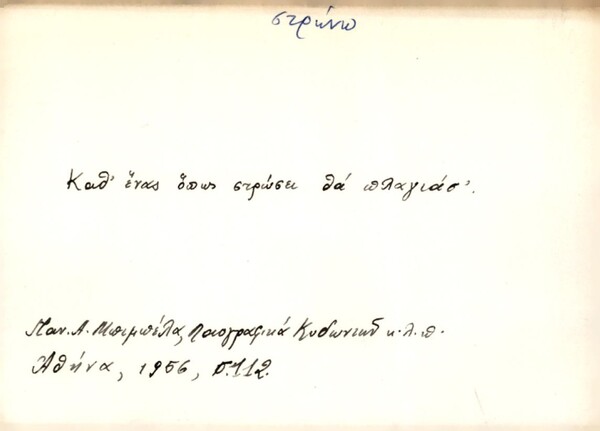 στρώνω
Καθ' ἕνας ὅπως στρώσει θά πλαγιάσ'.
Παν. Λ. Μπιμπέλα, Λαογραφικά Κυδωνιῶν κ.λ.π.
Ἀθήνα, 1956, σ. 112.